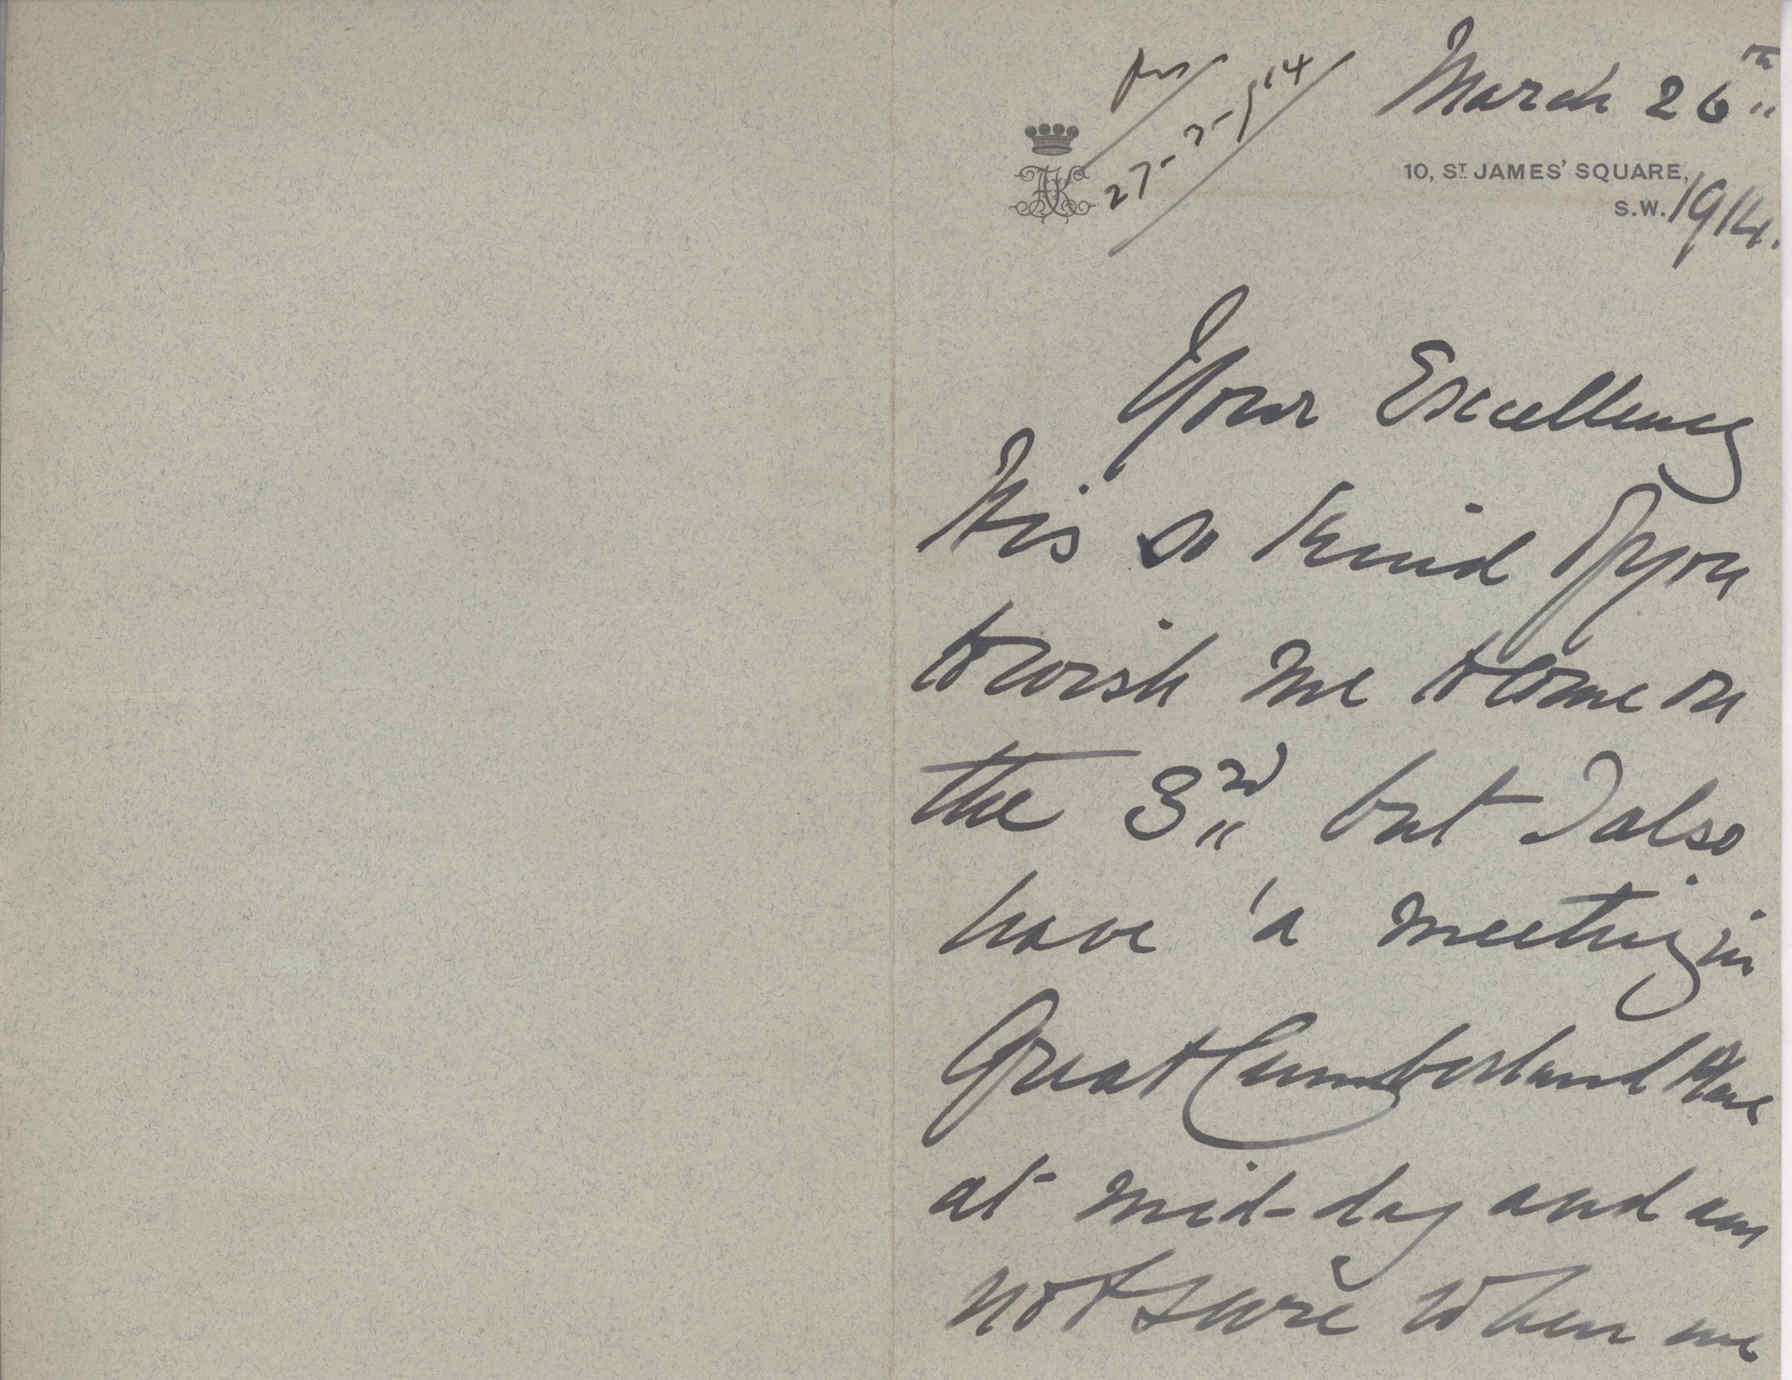 March 26th
27-3-14
10, ST JAMES' SQUARE,
S.W. 1914.
Your Excellency
It is so kind of you
to wish me to come on
the 3rd but I also
have a meeting in
Great Cumberland Place
at mid-day and am
not sure when we